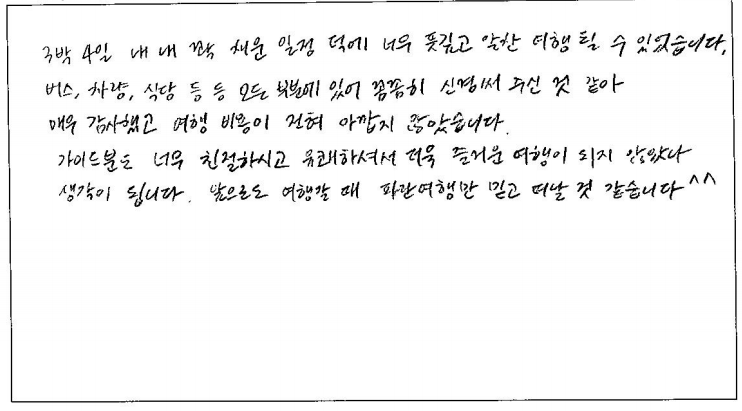 3박 4일 내내 꽉 채운 일정 덕에 너무 뜻깊고 알찬 여행 될 수 있었습니다.
버스, 차량, 식당 등등 모든 부분에 있어 꼼꼼히 신경써 주신 것 같아
매우 감사했고 여행 비용이 전혀 아깝지 않았습니다.
가이드분도 너무 친절하시고 유쾌하셔서 더욱 즐거운 여행이 되지 않았나
생각이 됩니다. 앞으로도 여행갈 때 파란여행만 믿고 떠날 것 같습니다^^